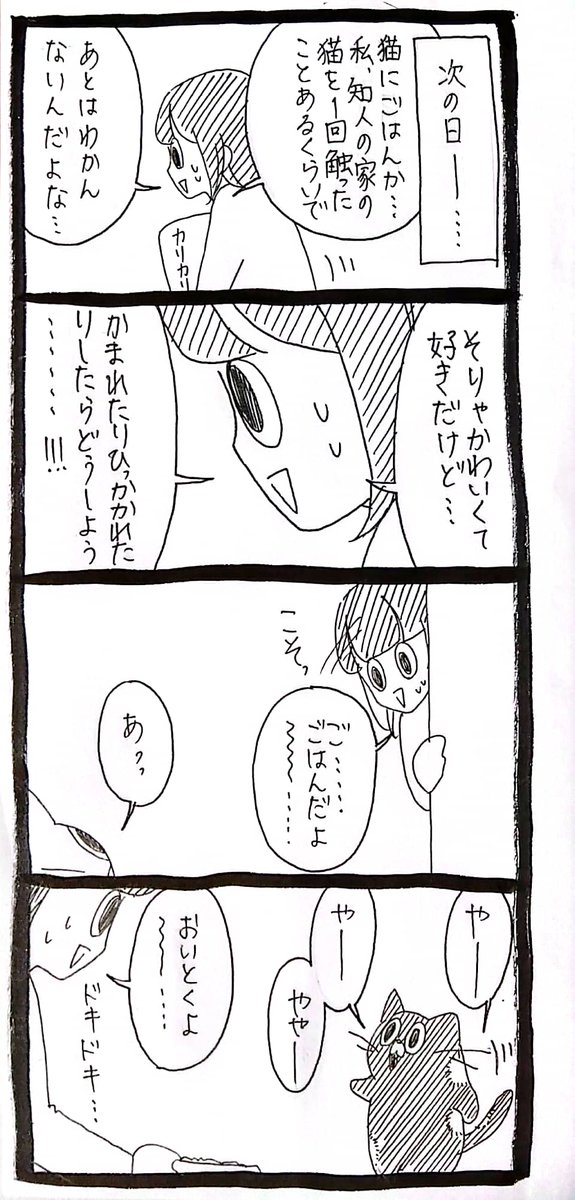 次の日ー……
猫にごはんか…
私、知人の家の
猫を1回触った
ことあるくらいで
あとはわかん
ないんだよな…
カリカリ
そりゃかわいくて
好きだけど…
かまれたりひっかかれた
りしたらどうしよう
………!!!
こそっ
ご……
ごはんだよ
〜〜〜……
あっ
やー
やー
ややー
おいとくよ
〜〜〜……
ドキドキ…